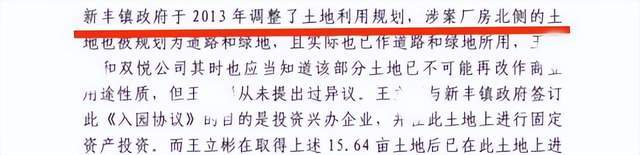 新丰镇政府于 2013 年调整了土地利用规划，涉案厂房北侧的土
地也被规划为道路和绿地，且实际也已作道路和绿地所用，王
和双悦公司其时也应当知道该部分土地已不可能再改作商业
用途性质，但王 从未提出过异议。王立 与新丰镇政府签订
此《入园协议》的目的是投资兴办企业，并在此土地上进行固定
资产投资。而王立彬在取得上述 15.64 亩土地后已在此土地上进